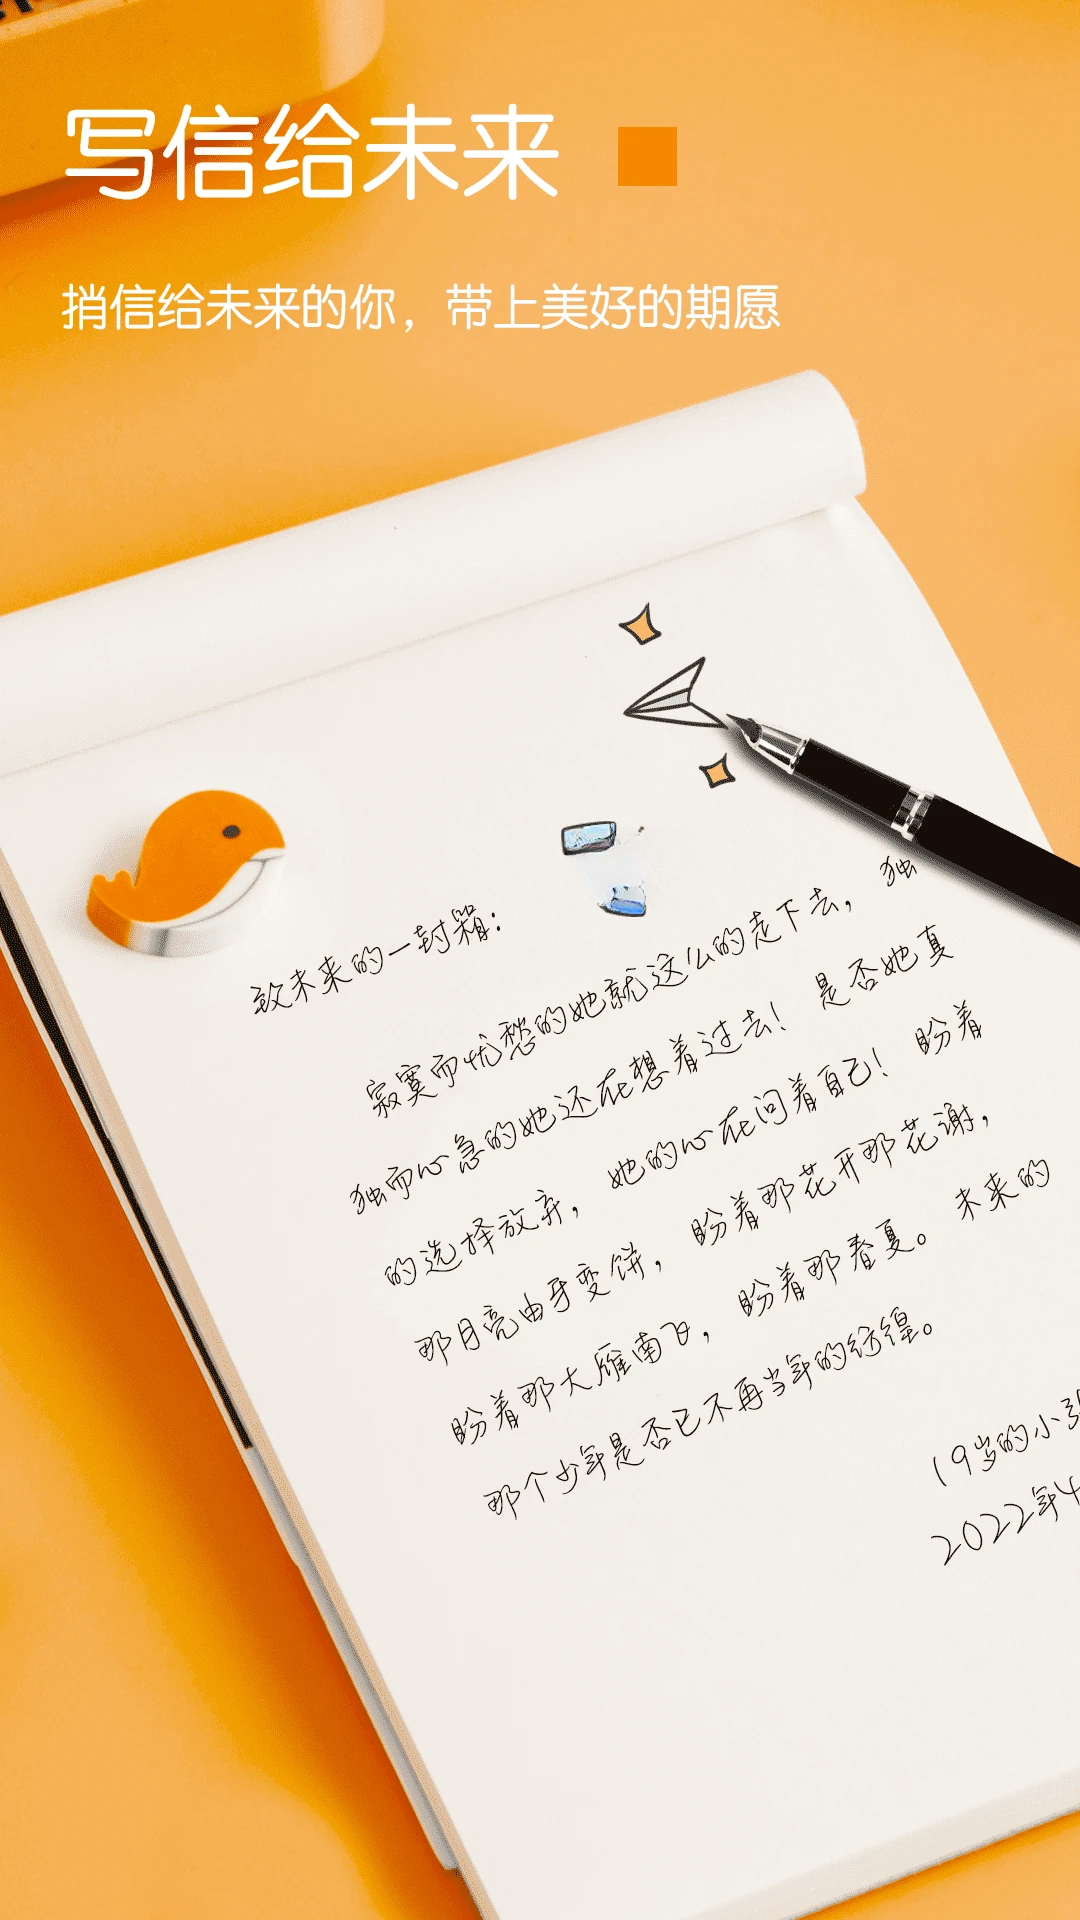 写信给未来
捎信给未来的你，带上美好的期愿
致未来的一封箱：
寂寞而忧愁的她就这么的走下去，独
独而心急的她还在想着过去！是否她真
的选择放弃，她的心在问着自己！盼着
那月亮由牙变饼，盼着那花开那花谢，
盼着那大雁南飞，盼着那春夏。未来的
那个少年是否已不再当年的彷徨。
19岁的小
2022年4